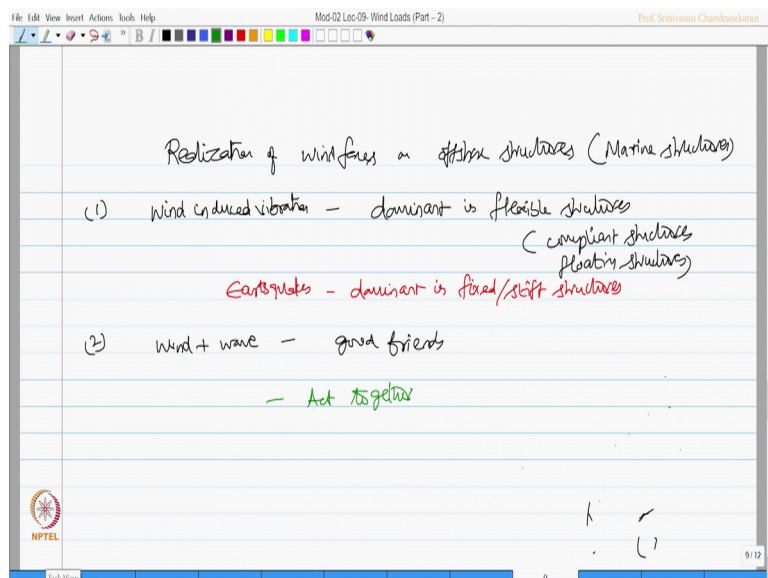 File Edit View Insert Actions Tools Help
Mod-02 Lec-09- Wind Loads (Part – 2)
Prof. Srinivasan Chandrasekaran
B I
Realization of wind forces on offshore structures (Marine structures)
(1) wind induced vibration – dominant in flexible structures
( compliant structures
floating structures)
Earthquakes – dominant in fixed/stiff structures
(2) wind + wave – good friends
– Act together
NPTEL
9/12